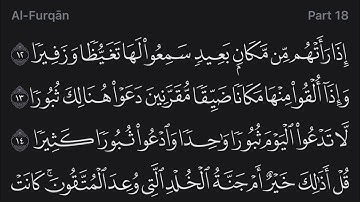 Al-Furqān Part 18
إِذَا رَأَتْهُم مِّن مَّكَانٍۭ بَعِيدٍ سَمِعُوا۟ لَهَا تَغَيُّظًا وَزَفِيرًا ١٢
وَإِذَآ أُلْقُوا۟ مِنْهَا مَكَانًا ضَيِّقًا مُّقَرَّنِينَ دَعَوْا۟ هُنَالِكَ ثُبُورًا ١٣
لَّا تَدْعُوا۟ ٱلْيَوْمَ ثُبُورًا وَٰحِدًا وَٱدْعُوا۟ ثُبُورًا كَثِيرًا ١٤
قُلْ أَذَٰلِكَ خَيْرٌ أَمْ جَنَّةُ ٱلْخُلْدِ ٱلَّتِى وُعِدَ ٱلْمُتَّقُونَ ۚ كَانَتْ